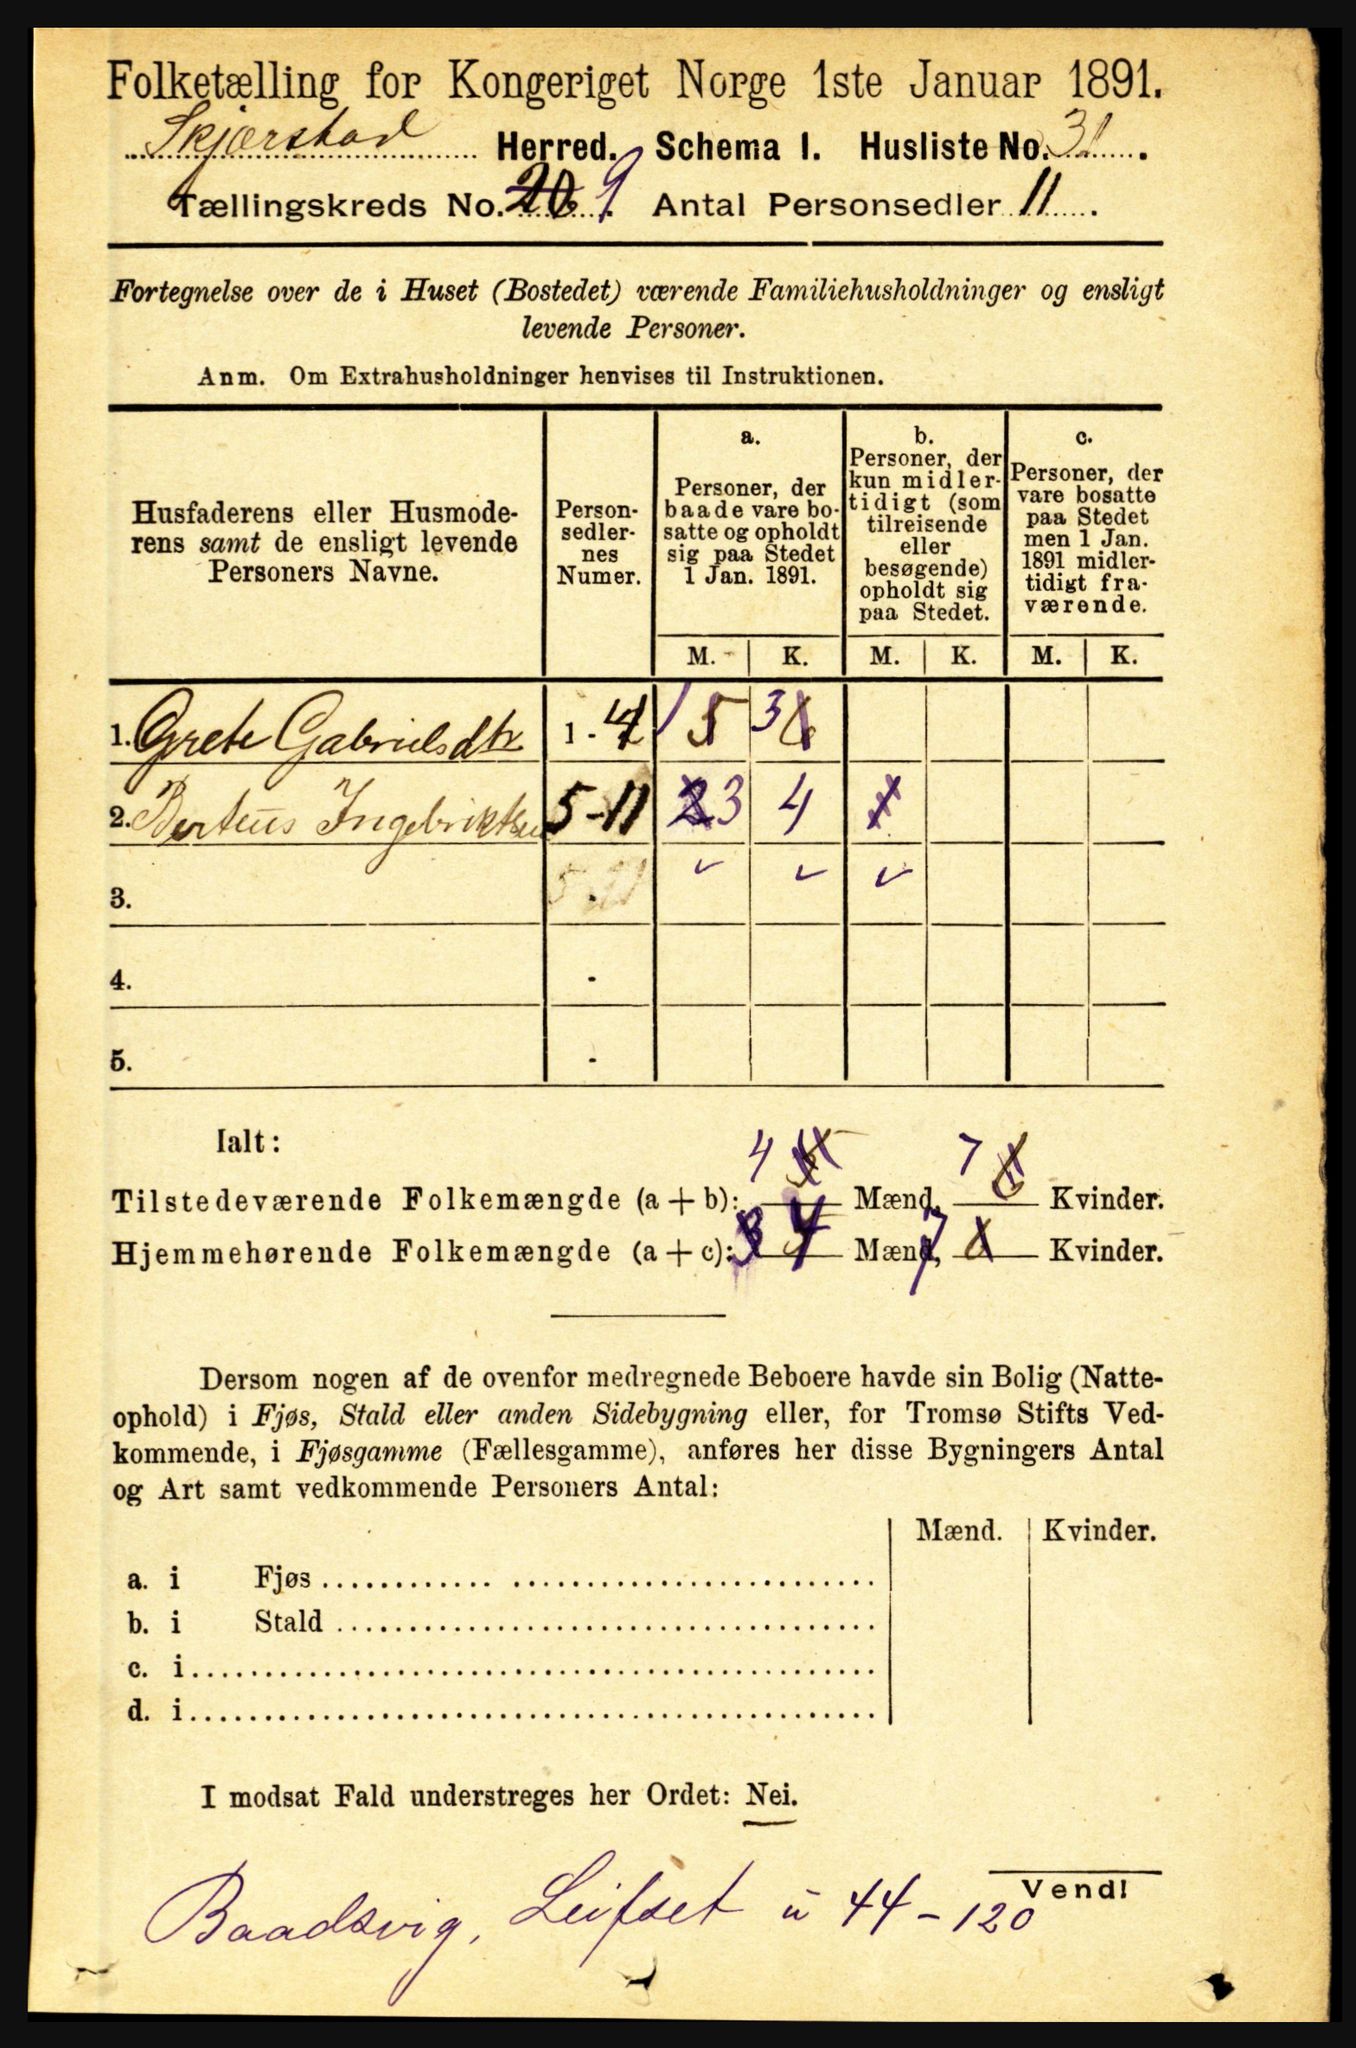 Folketælling for Kongeriget Norge 1ste Januar 1891.
Skjærstad Herred. Schema 1. Husliste No. 31.
Tællingskreds No. 20 9. Antal Personsedler 11.
Fortegnelse over de i Huset (Bostedet) værende Familiehusholdninger og ensligt
levende Personer.
Anm. Om Extrahusholdninger henvises til Instruktionen.
Husfaderens eller Husmode-
rens samt de ensligt levende
Personers Navne.
Person-
sedler-
nes
Numer.
a.
Personer, der
baade vare bo-
satte og opholdt
sig paa Stedet
1 Jan. 1891.
b.
Personer, der
kun midler-
tidigt (som
tilreisende
eller
besøgende)
opholdt sig
paa Stedet.
c.
Personer, der
vare bosatte
paa Stedet
men 1 Jan.
1891 midler-
tidigt fra-
værende.
M. K. M. K. M. K.
1. Grete Gabrielsdtr 1 - 4 1 5 3 6
2. Berteus Ingebriktsen 5-11 2 3 4 1
3. 5-11 ✓ ✓ ✓
4. -
5. -
Ialt:
Tilstedeværende Folkemængde (a + b): 4 5 Mænd, 7 6 Kvinder.
Hjemmehørende Folkemængde (a + c): 3 4 Mænd, 7 6 Kvinder.
Dersom nogen af de ovenfor medregnede Beboere havde sin Bolig (Natte-
ophold) i Fjøs, Stald eller anden Sidebygning eller, for Tromsø Stifts Ved-
kommende, i Fjøsgamme (Fællesgamme), anføres her disse Bygningers Antal
og Art samt vedkommende Personers Antal:
Mænd. Kvinder.
a. i Fjøs
b. i Stald
c. i
d. i
I modsat Fald understreges her Ordet: Nei.
Vend!
Baadsvig, Leifset u 44-120